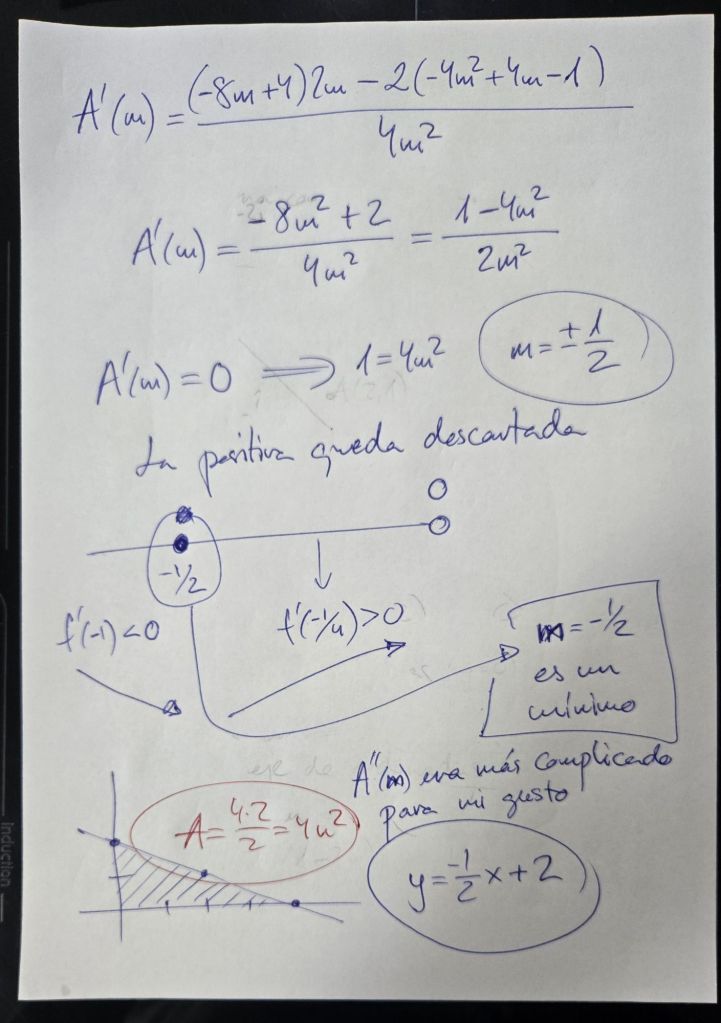 A'(m) = \frac{(-8m+4)2m - 2(-4m²+4m-1)}{4m²}
A'(m) = \frac{-8m²+2}{4m²} = \frac{1-4m²}{2m²}
A'(m) = 0 ⟹ 1 = 4m² m = ±\frac{1}{2}
La positiva queda descartada
0
-1/2
f'(-1) < 0 f'(-1/4) > 0
m = -1/2
es un
mínimo
A''(m) era más complicado
para mi gusto
A = \frac{4·2}{2} = 4u²
y = \frac{-1}{2}x + 2
induction